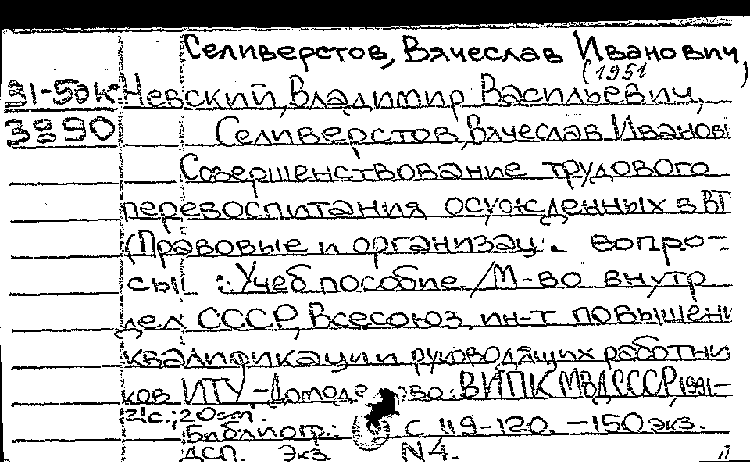 Селиверстов, Вячеслав Иванович,
(1951
31-50к Невский, Владимир Васильевич,
3990 Селиверстов, Вячеслав Иванови
Совершенствование трудового
перевоспитания осужденных в ВТ
(Правовые и организац. вопро-
сы) : Учеб пособие / М-во внутр
дел СССР, Всесоюз. ин-т повышени
квалификации руководящих работни
ков ИТУ - : ВИПК МВД СССР, 1991-
с.; 20 см.
Библиогр.: с 119-120. - 150 экз.
ДСП. Экз N4.